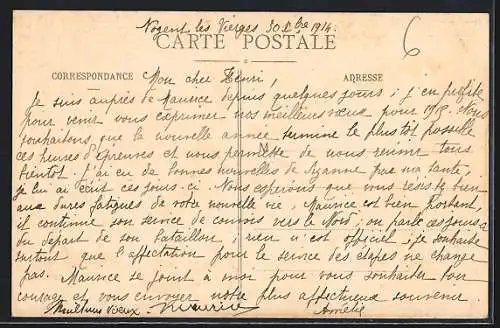 Nogent les Vierges 30 Xbre 1914.
CARTE POSTALE
6
CORRESPONDANCE
ADRESSE
Mon cher Henri,
Je suis auprès de Maurice depuis quelques jours ; j'en profite
pour venir vous exprimer nos meilleurs vœux pour 1915. Nous
souhaitons que la nouvelle année termine le plus tôt possible
ces heures d'épreuves et vous permette de nous réunir tous
bientôt. J'ai eu de bonnes nouvelles de Suzanne par ma tante,
je lui ai écrit ces jours-ci. Nous espérons que vous résistez bien
aux dures fatigues de votre nouvelle vie, Maurice est bien portant,
il continue son service de convois vers le Nord ; on parle ces jours-ci
du départ de son bataillon ; rien n'est officiel, je souhaite
surtout que l'affectation pour le service des étapes ne change
pas. Maurice se joint à moi pour vous souhaiter bon
courage et vous envoyer notre plus affectueux souvenir.
Meilleurs vœux. Maurice Amélie